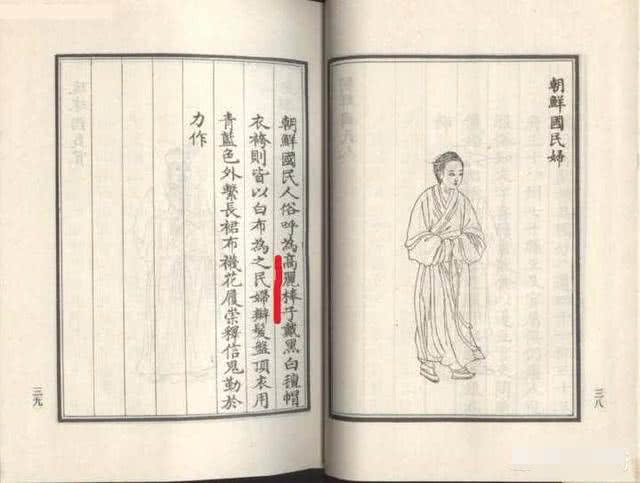 朝鮮國民婦
三八
朝鮮國民人俗呼為高麗棒子戴黑白氊帽
衣袴則皆以白布為之民婦辮髮盤頂衣用
青藍色外繫長裙布襪花履崇釋信鬼勤於
力作
三九